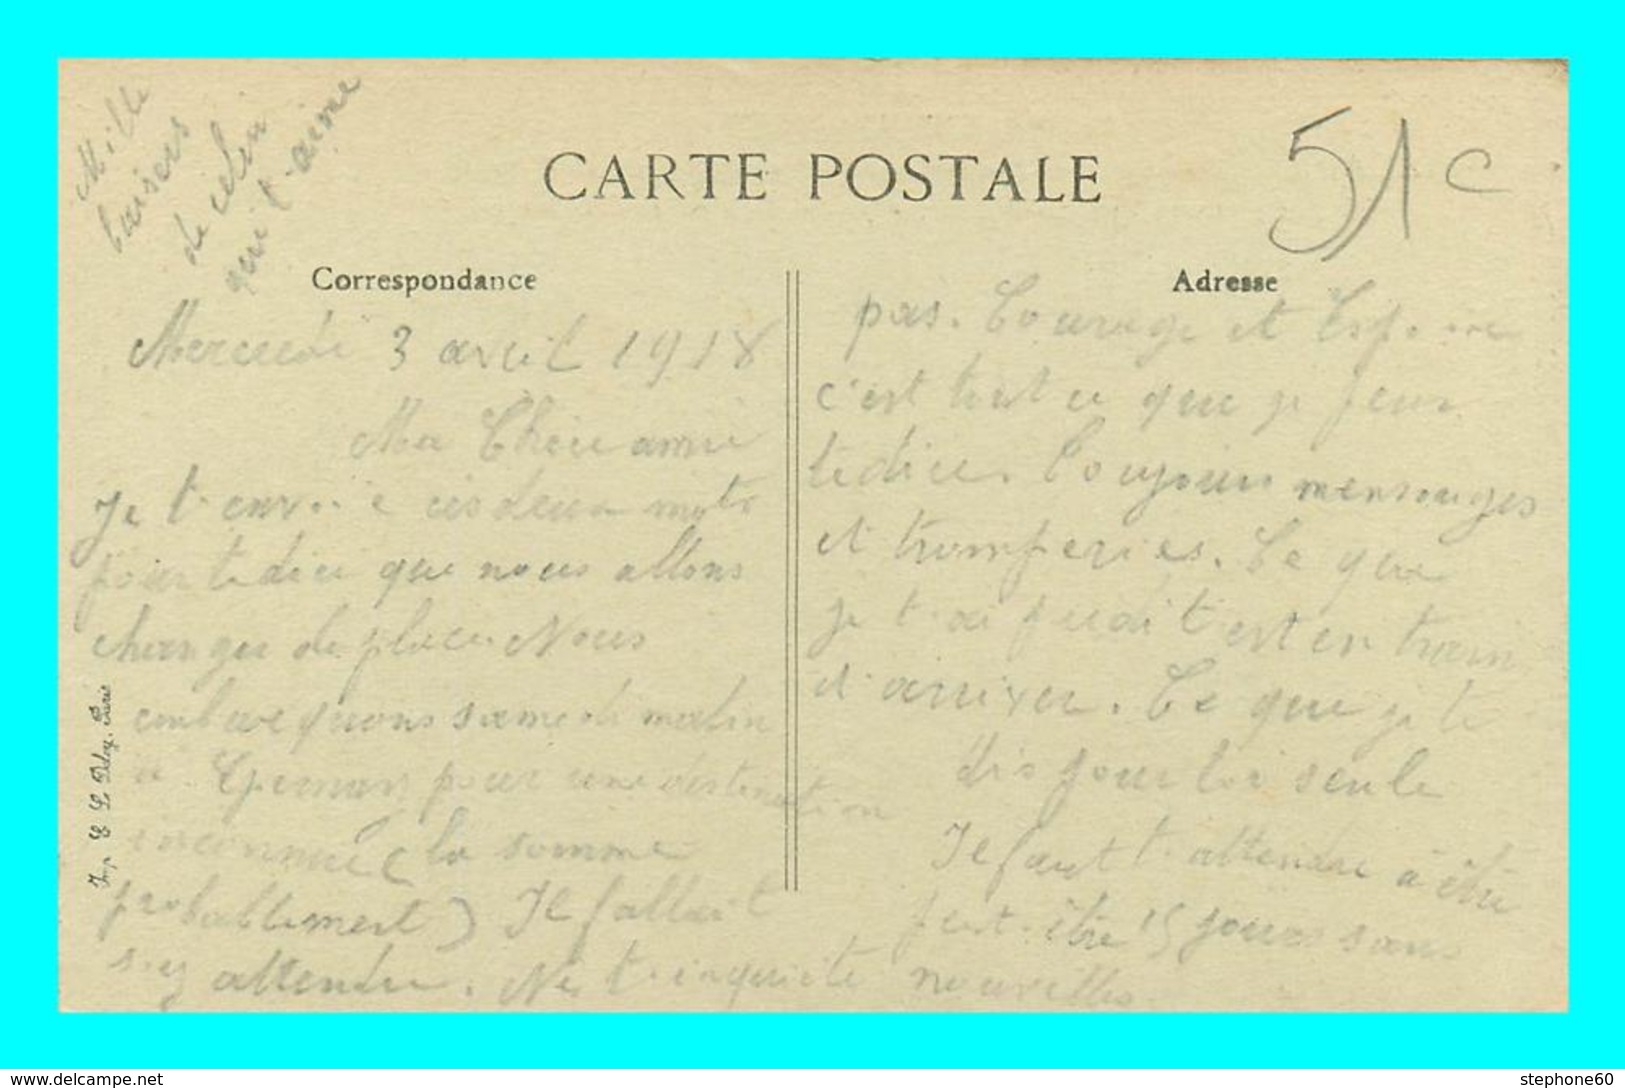 Mille
baisers
de celui
qui t-aime
CARTE POSTALE
51 c
Correspondance
Adresse
Mercredi 3 avril 1918
Ma Chère amie
Je t-envoie ces deux mots
pour te dire que nous allons
changer de place. Nous
embarquons samedi matin
à Epernay pour une destination
inconnue (la somme
probablement) Il fallait
s-y attendre. Ne t-inquiète
pas. Courage et Espoire
c'est tout ce que je peux
te dire. Toujours mensonges
et tromperies. Ce que
je t-ai prédit est en train
d'arriver. Ce que je te
dis pour toi seule
Il faut t-attendre à être
peut-être 15 jours sans
nouvelles
Imp. E. L. Deley. Paris
www.delcampe.net
stephone60